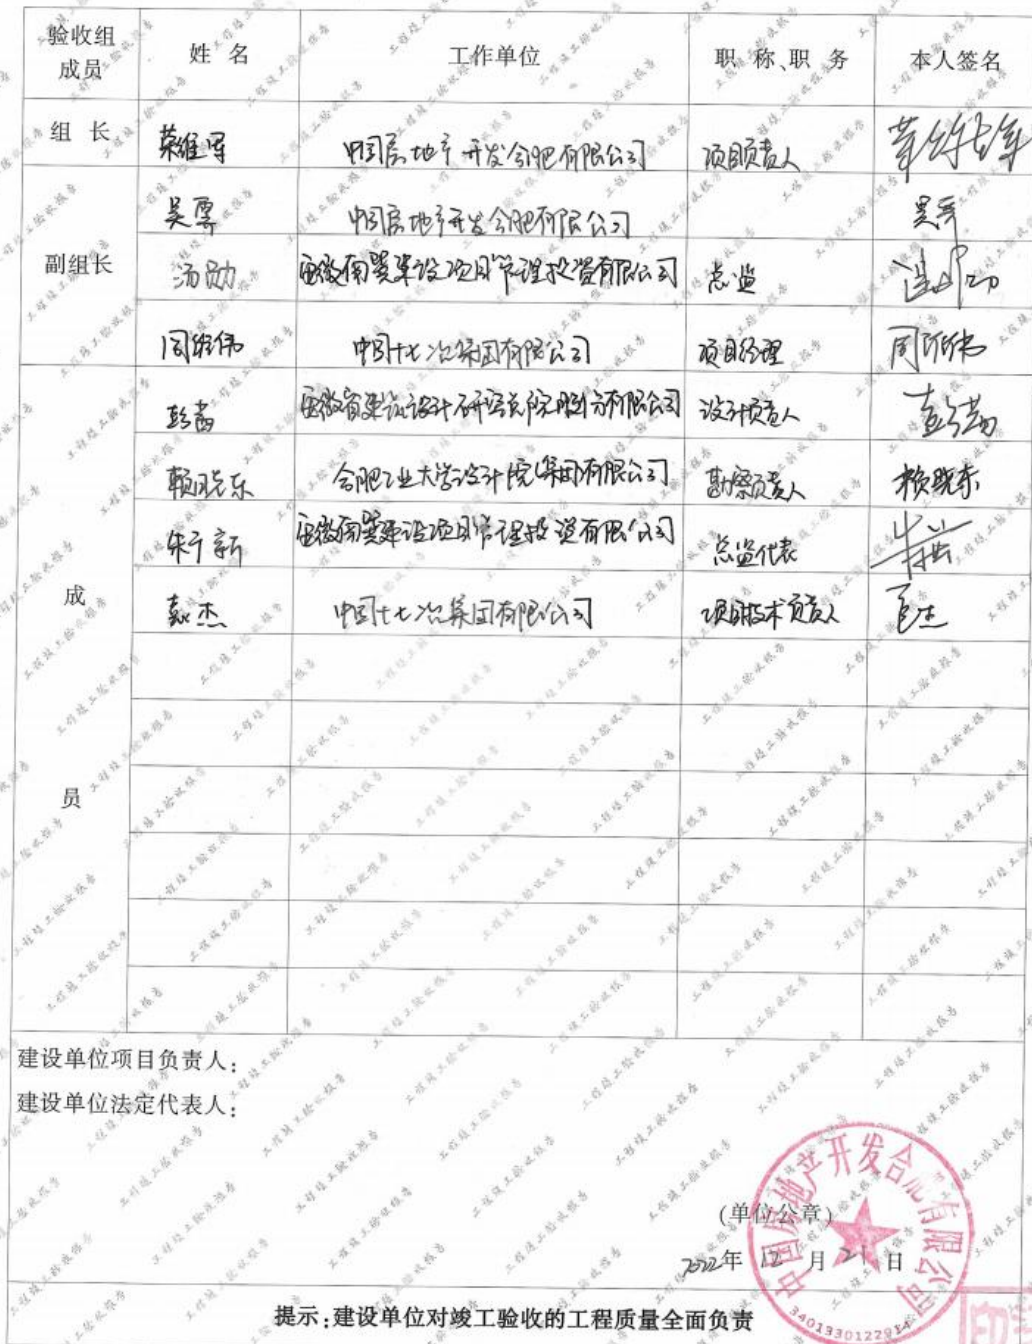 验收组成员 姓 名 工作单位 职 称、职 务 本人签名
组 长 荣维军 中国房地产开发合肥有限公司 项目负责人
副组长 吴雯 中国房地产开发合肥有限公司
汤勋 安徽南巽建设项目管理投资有限公司 总监
周维伟 中国十七冶集团有限公司 项目经理 周维伟
成员 彭茜 安徽省建设设计研究总院股份有限公司 设计负责人 彭茜
赖晓东 合肥工业大学设计院(集团)有限公司 勘察负责人 赖晓东
安徽南巽建设项目管理投资有限公司 总监代表
袁杰 中国十七冶集团有限公司 项目技术负责人 袁杰
建设单位项目负责人:
建设单位法定代表人:
中国房地产开发合肥有限公司
(单位公章)
2022年 12 月 21 日
提示:建设单位对竣工验收的工程质量全面负责
工程竣工验收报告